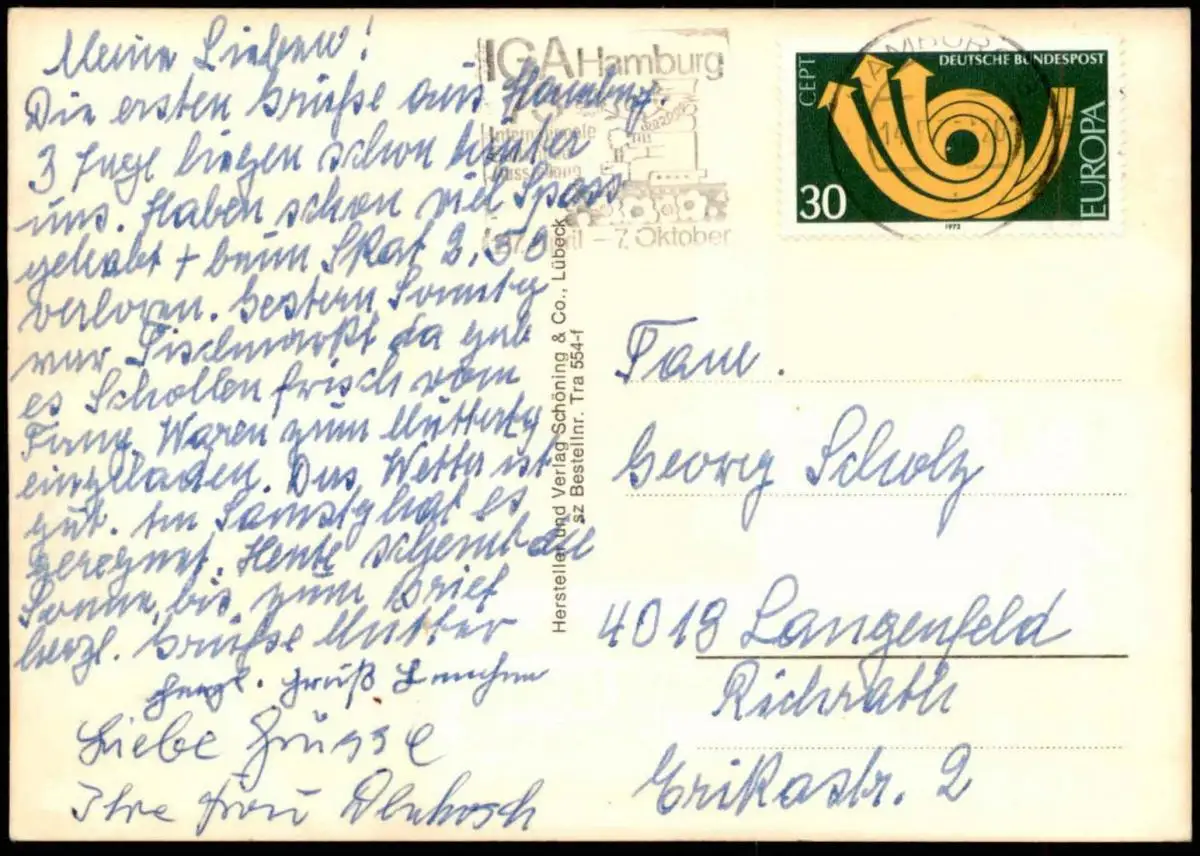 Meine Lieben!
Die ersten Grüße aus Hamburg.
3 Tage liegen schon hinter
uns. Haben schon viel Spass
gehabt + beim Skat 2,50
verloren. Gestern Sonntg
war Fischmarkt da gab
es Schollen frisch vom
Fang. Waren zum Muttertg
eingeladen. Das Wetter ist
gut. Am Samstg hat es
geregnet. Heute scheint die
Sonne, bis zum Brief
herzl. Grüße Mutter
herzl. Gruß Lenchen
Liebe Grüsse
Ihre Frau
IGA Hamburg
73
Internationale
Ausstellung
27. April – 7. Oktober
HAMBURG
CEPT
DEUTSCHE BUNDESPOST
EUROPA
30
1973
Hersteller und Verlag Schöning & Co., Lübeck
sz Bestellnr. Tra 554-f
Fam.
Georg Scholz
4018 Langenfeld
Richrath
Erikastr. 2